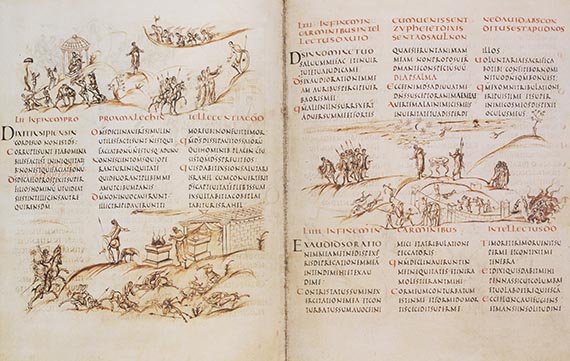 LII INFINEMPRO
DIXITINSIPIENSIN
CORDESUO NONESTDS
CORRUPTISUNT ETABOMINA
BILESFACTISUNT ININIQUITATI
BUS NONESTQUIFACIATBONUM
DSDECAELOPROSPEXITSUPER
FILIOSHOMINUM UTUIDEAT
SIESTINTELLEGENS AUTRE
QUIRENSDM
PROMALECHIN
OMNESDECLINAUERUNTSIMULIN
UTILESFACTISUNT NONESTQUI
FACIATBONUM NONESTUSQUEADUNUM
NONNESCIENTOMNESQUIOPE
RANTURINIQUITATEM
QUIDEUORANTPLEBEMME
AMUTCIBUMPANIS
DMNONINUOCAUERUNT
ILLICTREPIDAUERUNTTI
TELLECTUSDAUID
MOREUBINONFUITTIMOR
QMDSDISSIPAUITOSSAEORU
QUIHOMINIBUSPLACENT CONFU
SISUNTQMDSSPREUITEOS
QUISDABITEXSIONSALUTARE
ISRAHEL CUMCONUERTERIT
DSCAPTIUITATEPLEBISSUAE
EXULTABITIACOBETLAE
TABITURISRAHEL
LIII INFINEMIN
CARMINIBUSINTEL
LECTUSDAUID
DSINNOMINETUO
SALUUMMEFAC ETINUIR
TUTETUAIUDICAME
DSEXAUDIORATIONEMME
AM AURIBUSPERCIPEUER
BAORISMEI
QMALIENIINSURREXERT
ADUERSUMMEETFORTES
CUMUENISSENT
ZYPHEIETDIXIS
SENTADSAULNON
QUAESIERUNTANIMAM
MEAM NONPROPOSUER
DMANTECONSPECTUSUU
DIAPSALMA
ECCEENIMDSADIUUATME
DNSSUSCEPTORANIMAEMEAE
AUERTEMALAINIMICISMEIS
INUERITATETUADISPERDE
NEDAUIDABSCON
DITUSESTAPUDNOS
ILLOS
UOLUNTARIESACRIFICA
BOTIBI CONFITEBORNOMI
NITUODNEQMBONUEST
QMEXOMNITRIBULATIONE
ERIPUISTIME ETSUPER
INIMICOSMEOSDESPEXIT
OCULUSMEUS
LIIII INFINEMIN
EXAUDIDSORATIO
NEMMEAMETNEDESPEX
ERISDEPRAECATIONEMMEA
INTENDEMIHIETEXAU
DIME
CONTRISTATUSSUMINEX
ERCITATIONEMEA ETCON
TURBATUSSUMAUOCEINI
CARMINIBUS
MICI ETATRIBULATIONE
PECCATORIS
QMDECLINAUERUNTIN
MEINIQUITATES ETINIRA
MOLESTIERANTMIHI
CORMEUMCONTURBATUM
ESTINME ETFORMIDOMOR
TISCECIDITSUPERME
INTELLECTUSDD
TIMORETTREMORUENITSU
PERME ETCONTEXERT
METENEBRAE
ETDIXIQUISDABITMIHI
PENNASSICUTCOLUMBAE
ETUOLABOETREQUIESCA
ECCEELONGAUIFUGIENS